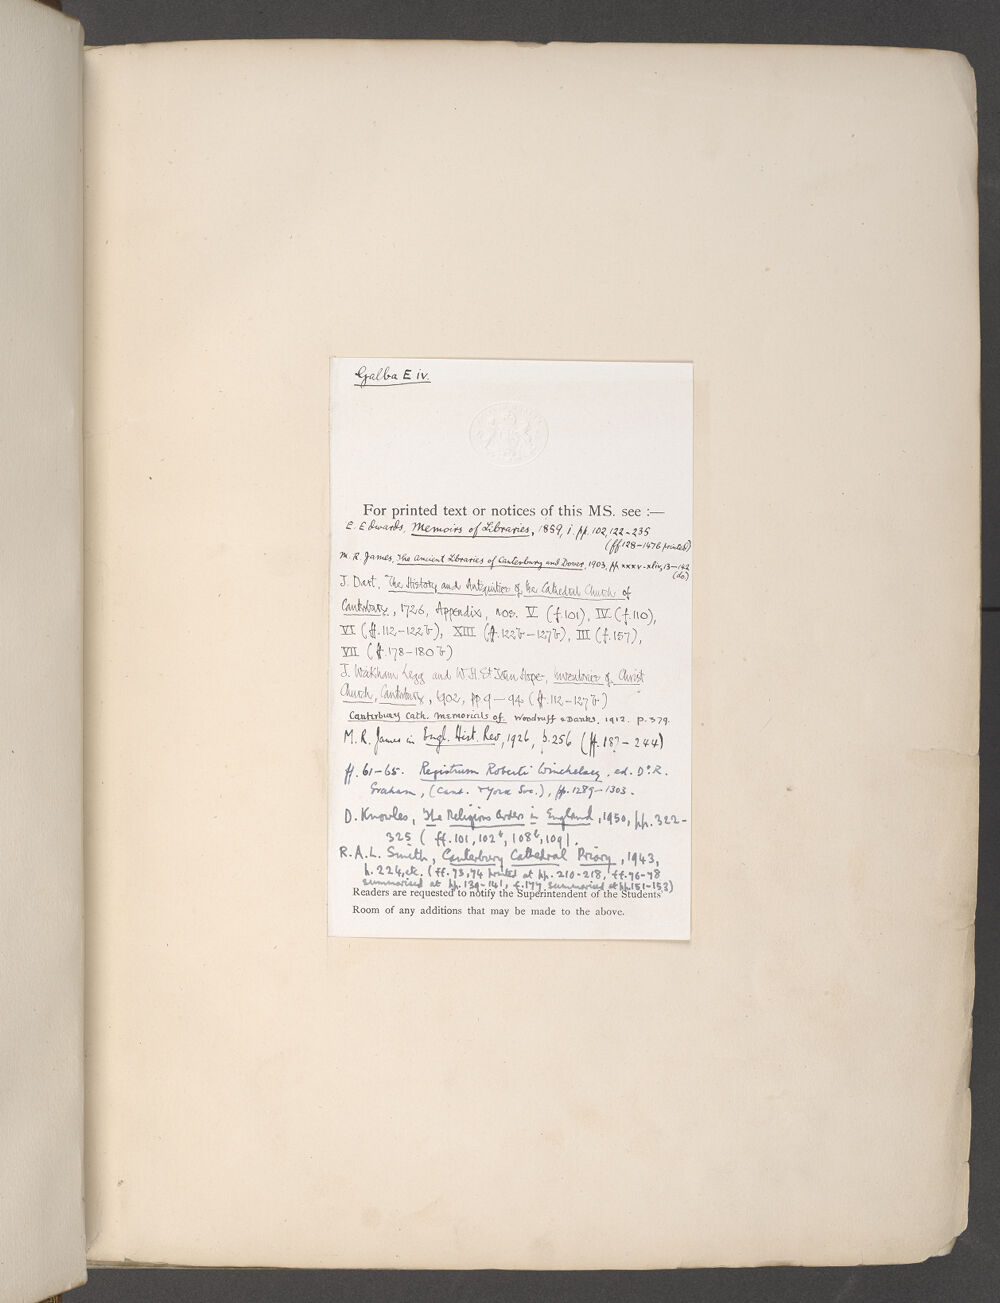 Galba E iv.
For printed text or notices of this MS. see :—
E. Edwards, Memoirs of Libraries, 1859, i. pp. 102, 122-235
(ff 128-147b printed)
M. R. James, The Ancient Libraries of Canterbury and Dover, 1903, pp. xxxv-xliv, 13-142
(do.)
J. Dart. The History and Antiquities of the Cathedral Church of
Canterbury, 1726, Appendix, nos. V (f. 101), IV (f. 110),
VI (ff. 112-122b), XIII (ff. 122b-127b), III (f. 157),
VII (ff. 178-180b)
J. Wickham Legg and W. H. St John Hope, Inventories of Christ
Church, Canterbury, 1902, pp 9-94 (ff. 112-127b)
Canterbury Cath. Memorials of Woodruff & Danks. 1912. p. 379.
M. R. James in Engl. Hist. Rev, 1926, p. 256 (ff. 187-244)
ff. 61-65. Registrum Roberti Winchelsey, ed. Dr. R.
Graham, (Cant. & York Soc.), pp. 1289-1303.
D. Knowles, The Religious Orders in England, 1950, pp. 322-
325 (ff. 101, 102b, 108b, 109).
R. A. L. Smith, Canterbury Cathedral Priory, 1943,
p. 224, etc. (ff. 73, 74 printed at pp. 210-218, ff. 76-78
summarised at pp. 139-141, f. 177 summarised at pp. 151-153)
Readers are requested to notify the Superintendent of the Students'
Room of any additions that may be made to the above.